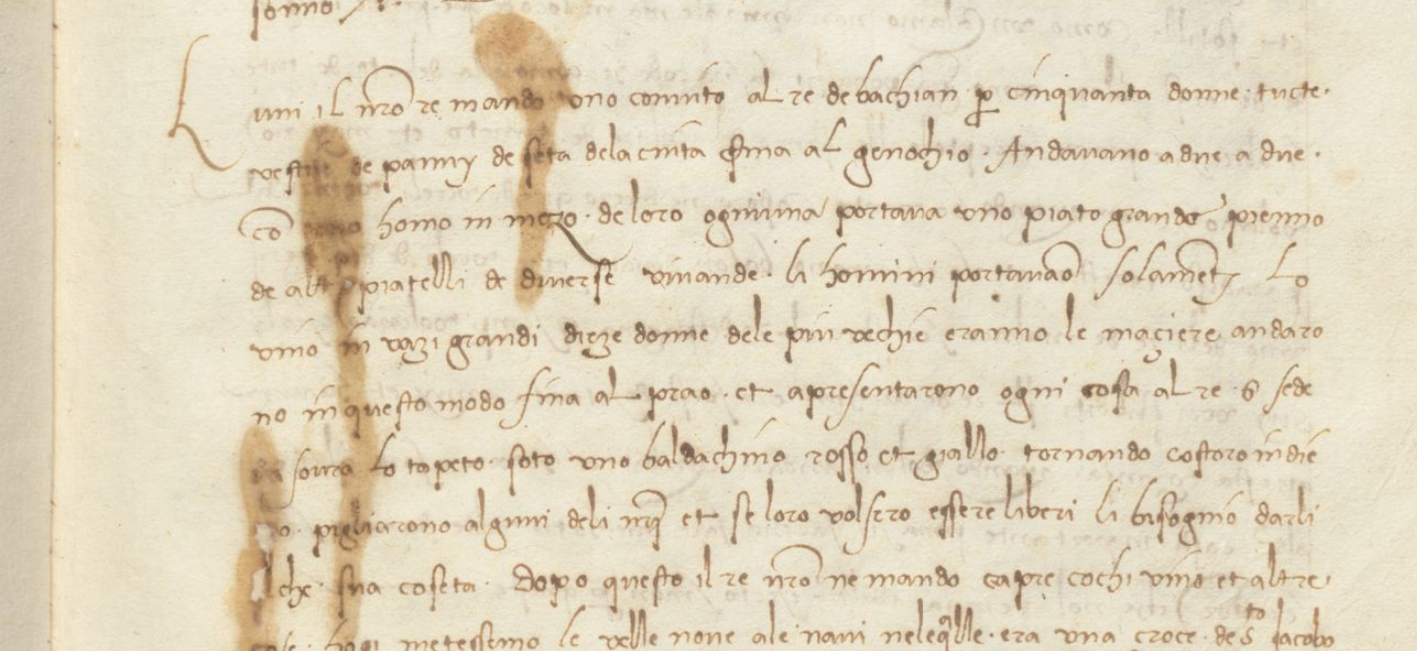 Luni il nr̃o re mando uno convito al re de bachian ꝑ cinquanta donne tucte ·
vestite de panny de seta dela cinta fina al genochio · Andavano a due a due ·
cõ homo in mezo · de loro ogniuna portava uno piato grande pienno
de alt piatelli de diverse vivande · li homini portavão solamẽty lo
vino in vazi grandi dieze donne dele più vechie eranno le maçiere andaro
no in questo modo fina al prao · et apresentarono ogni cosa al re · q̃ sede
va soura lo tapeto · soto uno baldachino rosso et giallo · tornando costoro indie
ro · pigliarono alguni deli nrĩ et se loro volsero essere liberi li bisognio darli
lche · sua coseta · dopo questo il re nr̃o ne mando capre cochi vino et altre ·
cose · hogi metessemo le velle nove a le navi neleq̃lle · era una croce · de s^to Jacobo